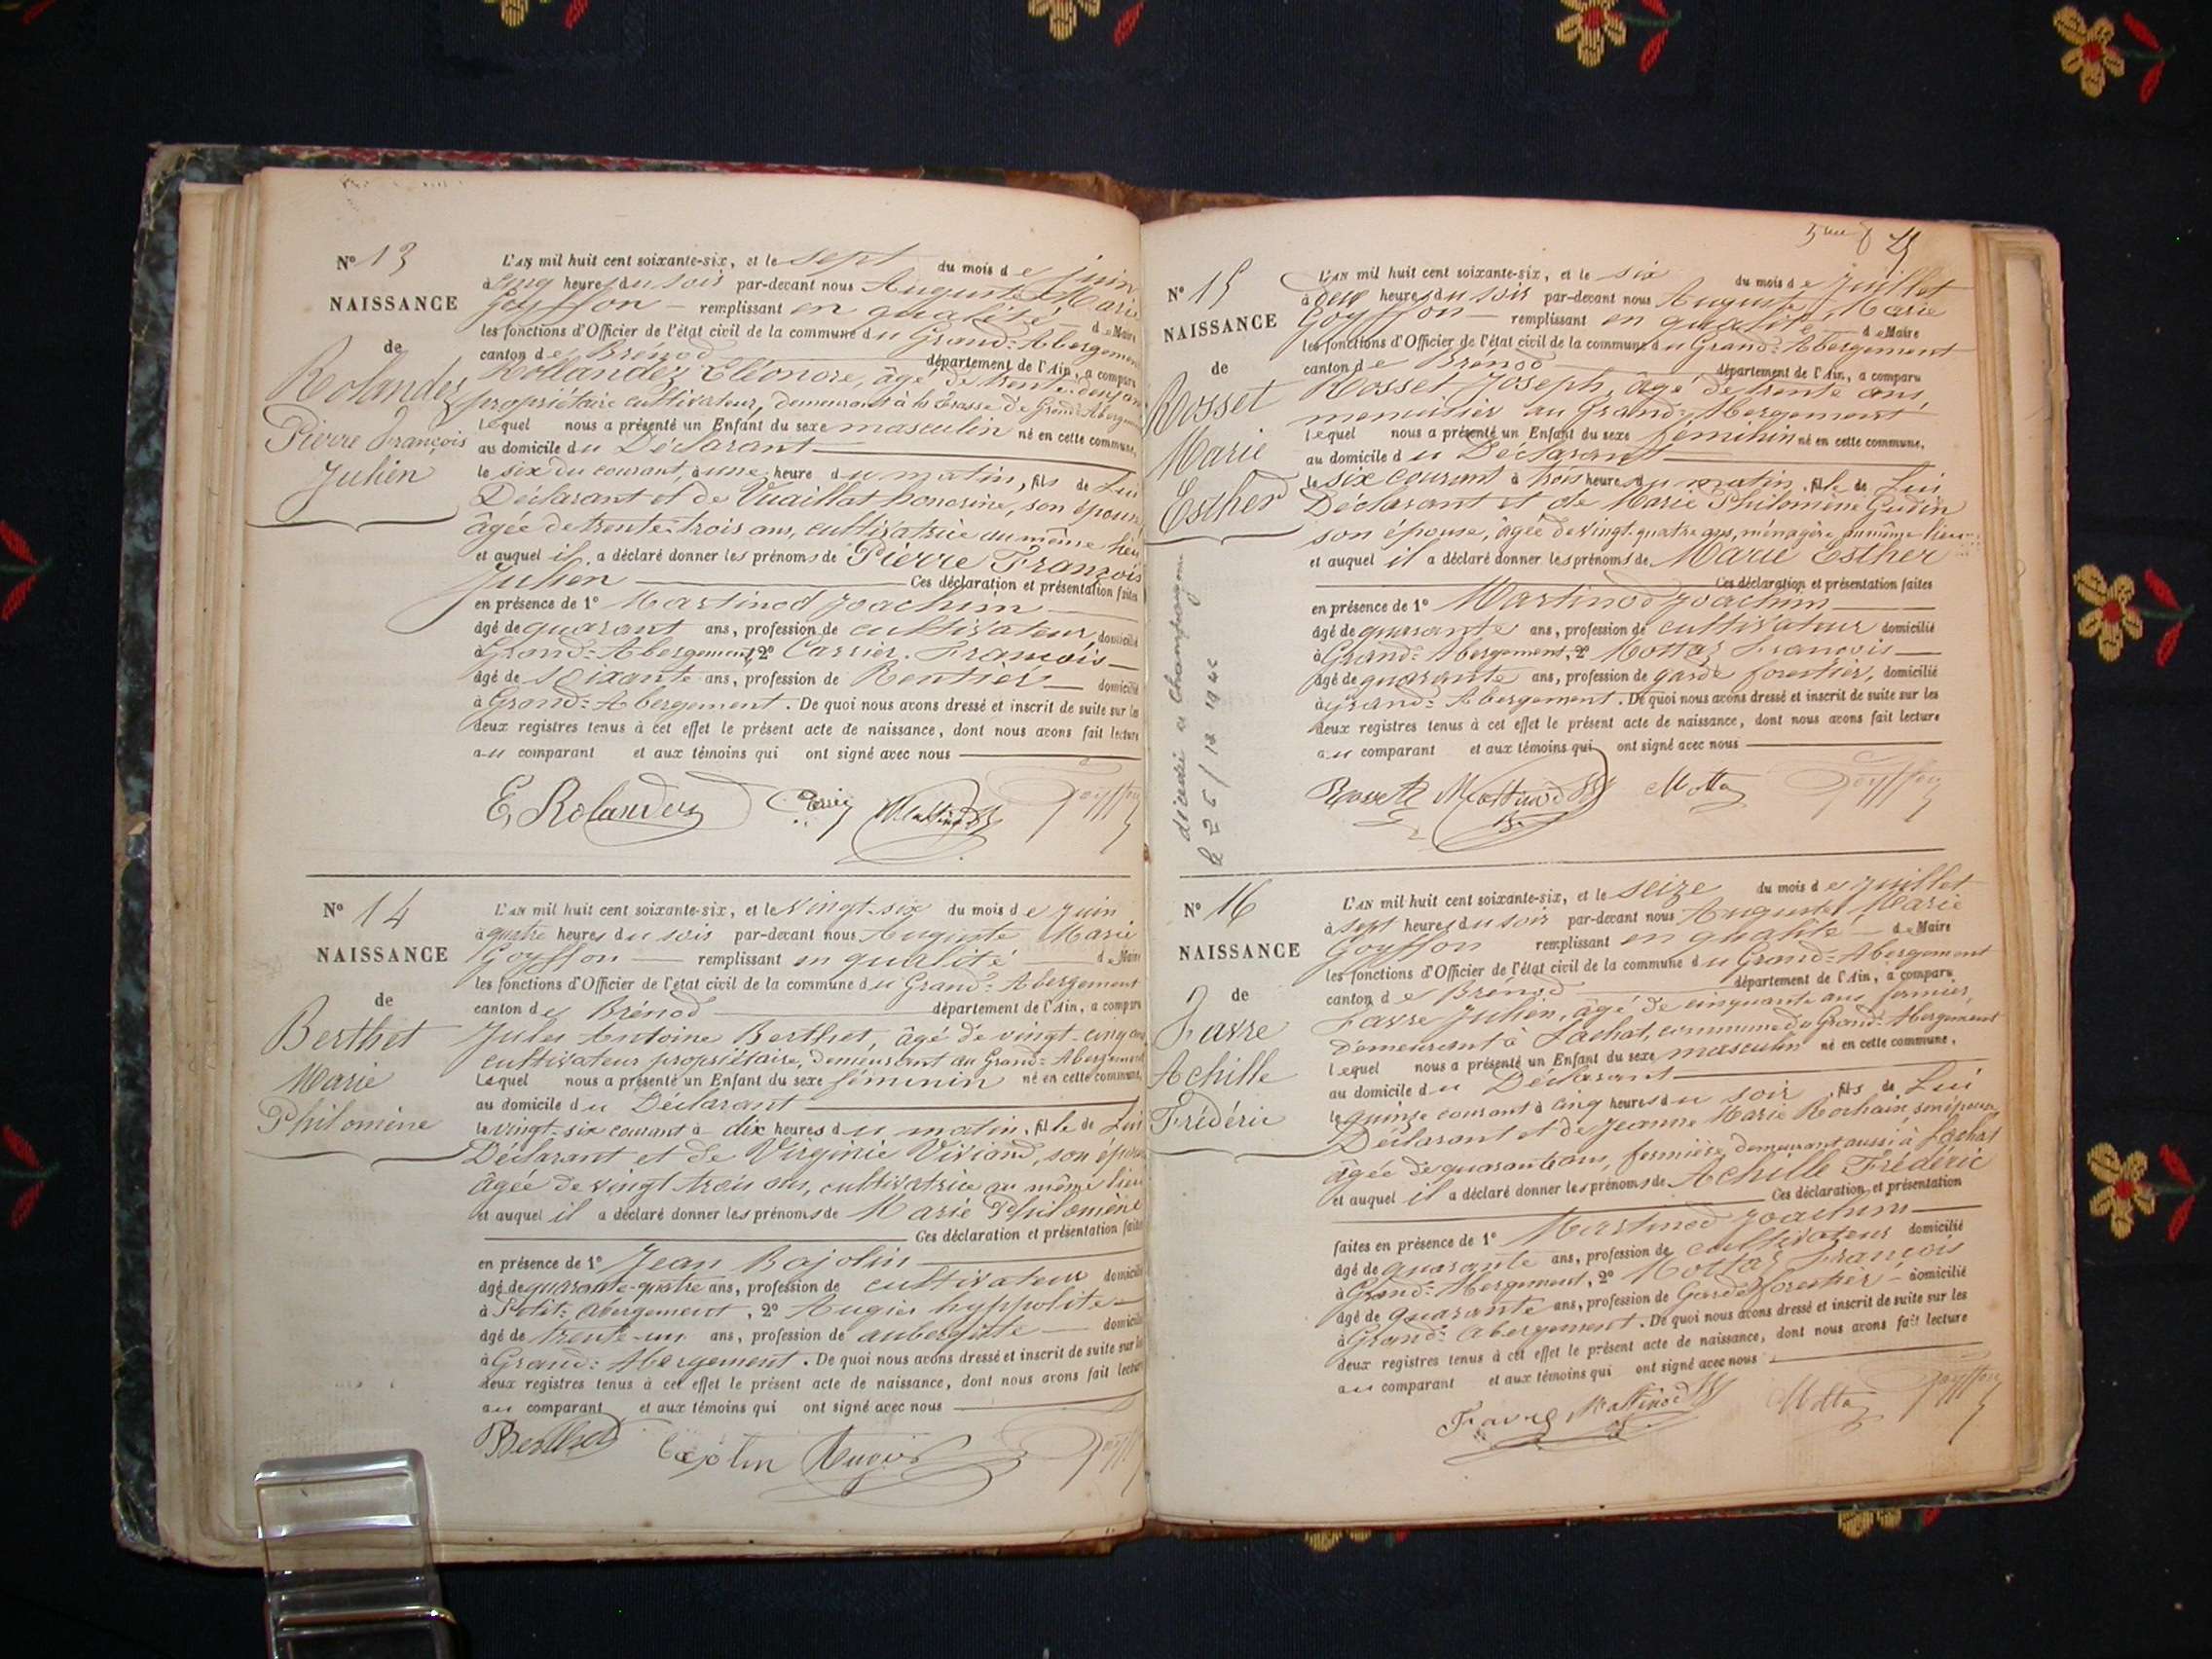 Nº 13
NAISSANCE
de
Rolandez
Pierre François
Julien
L'AN mil huit cent soixante-six, et le sept du mois de juin
à cinq heures du soir par-devant nous Auguste Marie
Goyffon remplissant en qualité de Maire
les fonctions d'Officier de l'état civil de la commune du Grand-Abergement
canton de Brénod département de l'Ain, a comparu
Rollandez Eléonore, âgé de trente-deux ans
propriétaire cultivateur, demeurant à la Grasse de Grand-Abergement
Lequel nous a présenté un Enfant du sexe masculin né en cette commune,
au domicile du Déclarant
le six du courant, à une heure du matin, fils de Lui
Déclarant et de Vuaillat honorine, son épouse
âgée de trente-trois ans, cultivatrice au même lieu
et auquel il a déclaré donner les prénoms de Pierre François
Julien Ces déclaration et présentation faites
en présence de 1º Martinod Joachim
âgé de quarant ans, profession de cultivateur domicilié
à Grand-Abergement, 2º Carrier François
âgé de soixante ans, profession de Rentier domicilié
à Grand-Abergement. De quoi nous avons dressé et inscrit de suite sur les
deux registres tenus à cet effet le présent acte de naissance, dont nous avons fait lecture
au comparant et aux témoins qui ont signé avec nous
E, Rolandez Martinod Goyffon
Nº 14
NAISSANCE
de
Berthet
Marie
Philomène
L'AN mil huit cent soixante-six, et le vingt-six du mois de juin
à quatre heures du soir par-devant nous Auguste Marie
Goyffon remplissant en qualité de Maire
les fonctions d'Officier de l'état civil de la commune du Grand-Abergement
canton de Brénod département de l'Ain, a comparu
Jules Antoine Berthet, âgé de vingt-cinq ans
cultivateur propriétaire, demeurant au Grand-Abergement
Lequel nous a présenté un Enfant du sexe féminin né en cette commune,
au domicile du Déclarant
le vingt-six courant à dix heures du matin, fille de Lui
Déclarant et de Virginie Viviand, son épouse
âgée de vingt trois ans, cultivatrice au même lieu
et auquel il a déclaré donner les prénoms de Marie Philomène
Ces déclaration et présentation faites
en présence de 1º Jean Bajolin
âgé de quarante-quatre ans, profession de cultivateur domicilié
à Petit-Abergement, 2º Augier hyppolite
âgé de trente-un ans, profession de aubergiste domicilié
à Grand-Abergement. De quoi nous avons dressé et inscrit de suite sur les
deux registres tenus à cet effet le présent acte de naissance, dont nous avons fait lecture
au comparant et aux témoins qui ont signé avec nous
Berthet Bajolin Augier Goyffon
Nº 15
NAISSANCE
de
Rosset
Marie
Esther
décédée à Champagne
L'AN mil huit cent soixante-six, et le six du mois de juillet
à deux heures du soir par-devant nous Auguste Marie
Goyffon remplissant en qualité de Maire
les fonctions d'Officier de l'état civil de la commune du Grand-Abergement
canton de Brénod département de l'Ain, a comparu
Rosset Joseph, âgé de trente ans,
menuisier au Grand-Abergement
Lequel nous a présenté un Enfant du sexe féminin né en cette commune,
au domicile du Déclarant
le six courant à trois heures du matin, fille de Lui
Déclarant et de Marie Philomène Gudin
son épouse, âgée de vingt-quatre ans, ménagère au même lieu
et auquel il a déclaré donner les prénoms de Marie Esther
Ces déclaration et présentation faites
en présence de 1º Martinod Joachim
âgé de quarante ans, profession de cultivateur domicilié
à Grand-Abergement, 2º Mottaz François
âgé de quarante ans, profession de garde forestier, domicilié
à Grand-Abergement. De quoi nous avons dressé et inscrit de suite sur les
deux registres tenus à cet effet le présent acte de naissance, dont nous avons fait lecture
au comparant et aux témoins qui ont signé avec nous
Rosset Martinod Mottaz Goyffon
Nº 16
NAISSANCE
de
Favre
Achille
Frédéric
L'AN mil huit cent soixante-six, et le seize du mois de juillet
à sept heures du soir par-devant nous Auguste Marie
Goyffon remplissant en qualité de Maire
les fonctions d'Officier de l'état civil de la commune du Grand-Abergement
canton de Brénod département de l'Ain, a comparu
Favre Julien, âgé de cinquante ans fermier,
demeurant à Lachat, commune du Grand-Abergement
Lequel nous a présenté un Enfant du sexe masculin né en cette commune,
au domicile du Déclarant
le quinze courant à cinq heures du soir, fils de Lui
Déclarant et de Jeanne Marie Rochaix son épouse,
âgée de quarante ans, fermière, demeurant aussi à Lachat
et auquel il a déclaré donner les prénoms de Achille Frédéric
Ces déclaration et présentation
faites en présence de 1º Martinod Joachim
âgé de quarante ans, profession de cultivateur domicilié
à Grand-Abergement, 2º Mottaz François
âgé de quarante ans, profession de Garde forestier domicilié
à Grand-Abergement. De quoi nous avons dressé et inscrit de suite sur les
deux registres tenus à cet effet le présent acte de naissance, dont nous avons fait lecture
au comparant et aux témoins qui ont signé avec nous
Favre Martinod Mottaz Goyffon